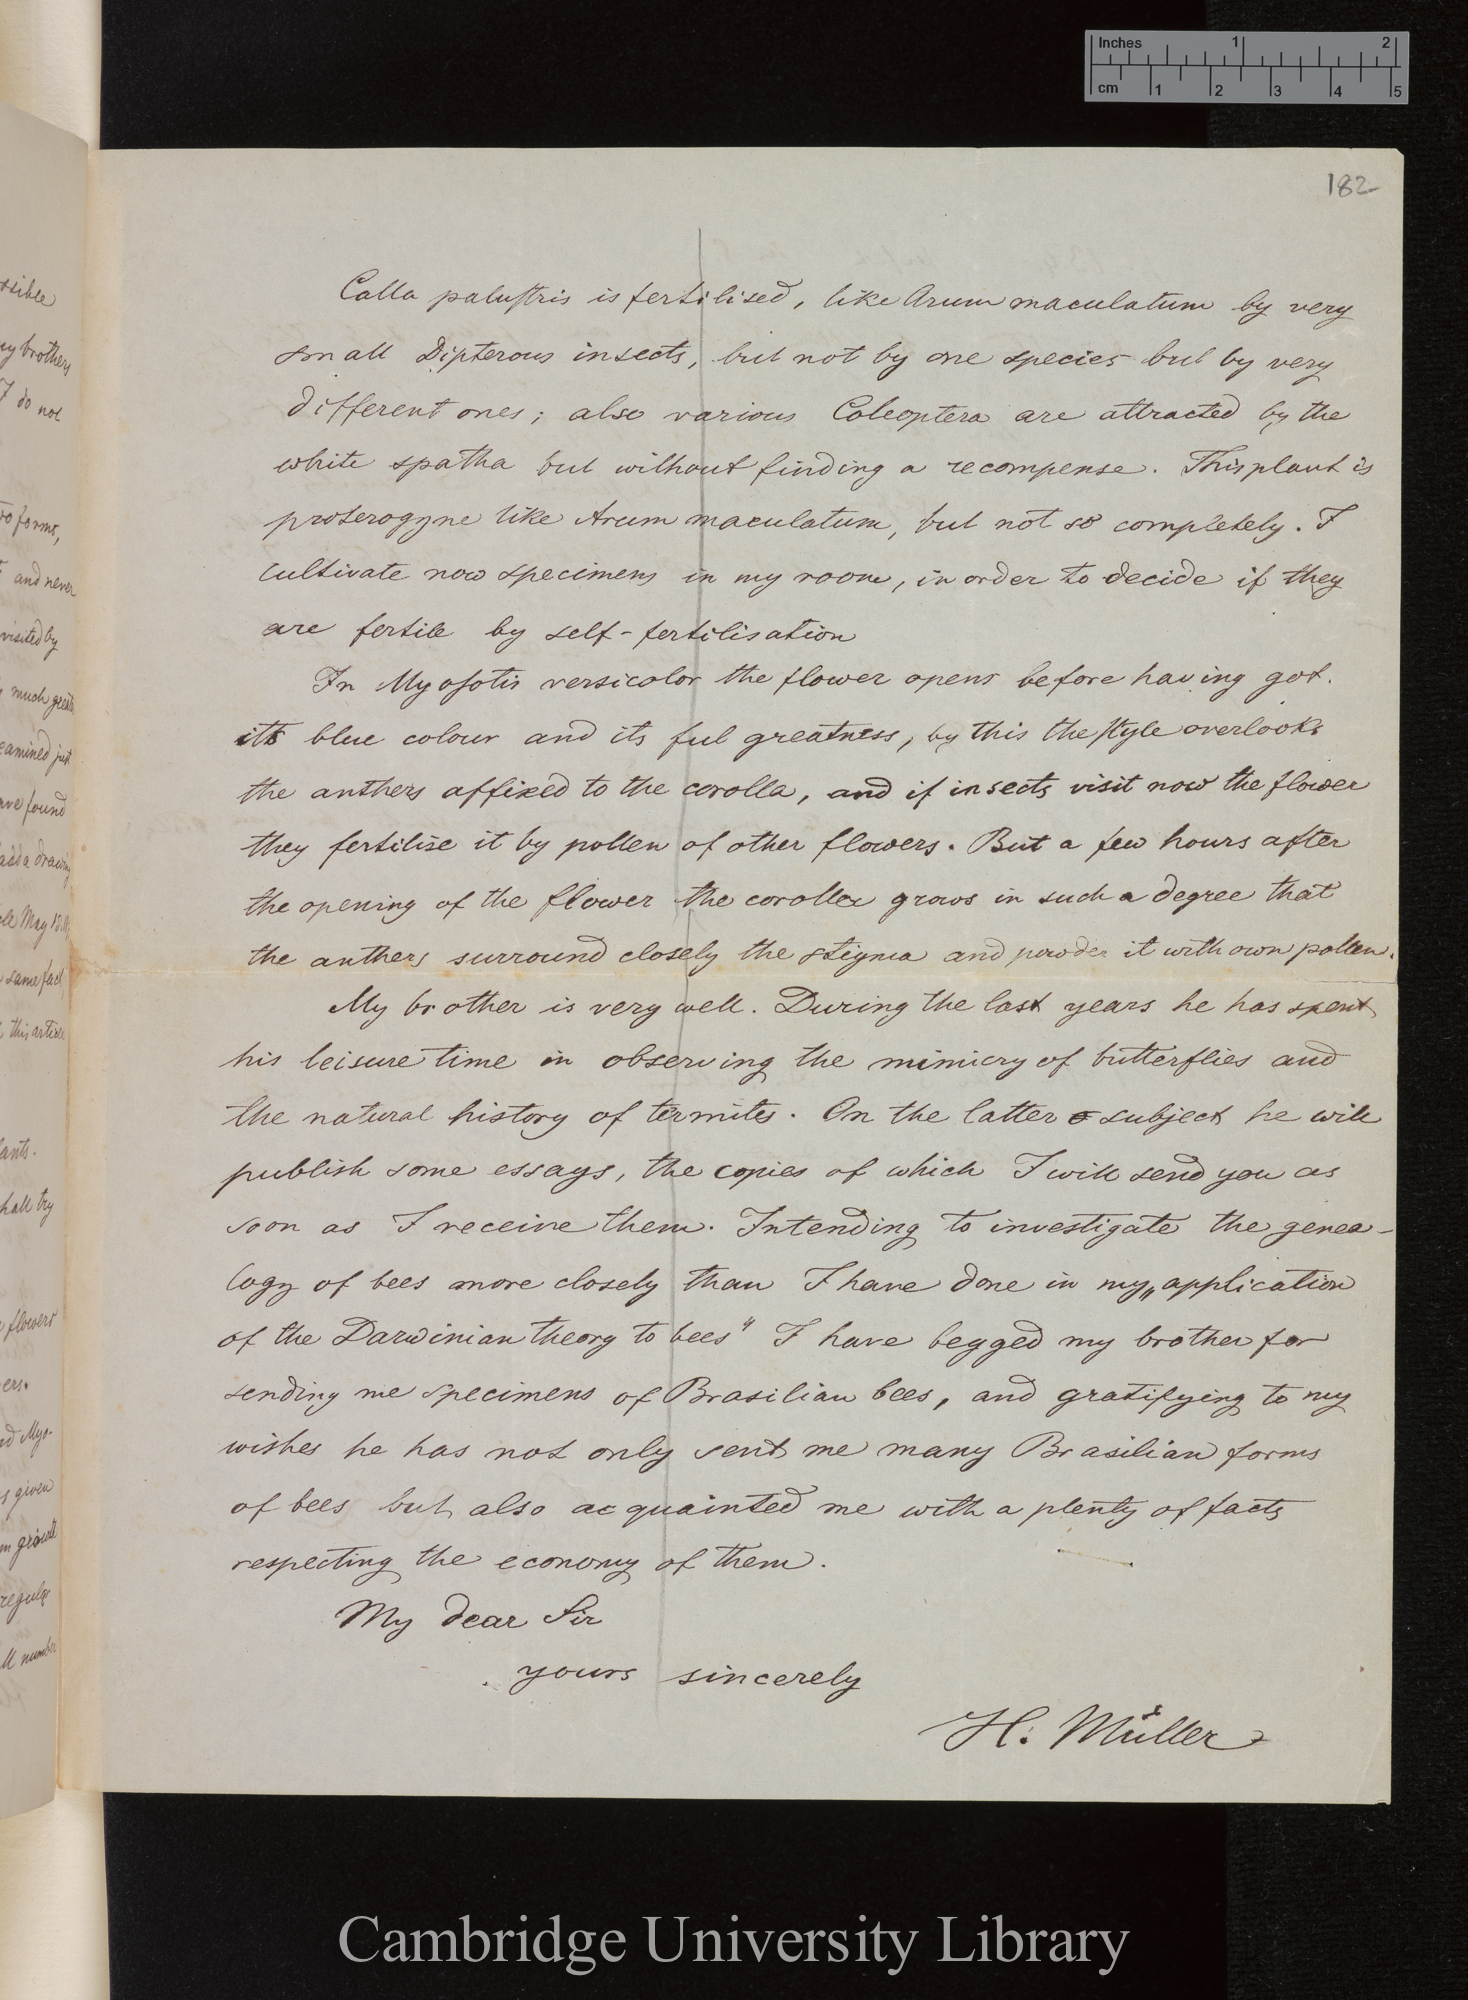 Inches 1 2
cm 1 2 3 4 5
182
Calla palustris is fertilised, like Arum maculatum by very
small Dipterous insects, but not by one species but by very
different ones; also various Coleoptera are attracted by the
white spatha but without finding a recompense. This plant is
proterogyne like Arum maculatum, but not so completely. I
cultivate now specimens in my room, in order to decide if they
are fertile by self-fertilisation
In Myosotis versicolor the flower opens before having got.
its blue colour and its ful greatness, by this the style overlooks
the anthers affixed to the corolla, and if insects visit now the flower
they fertilise it by pollen of other flowers. But a few hours after
the opening of the flower the corolla grows in such a degree that
the anthers surround closely the stigma and powder it with own pollen.
My brother is very well. During the last years he has spent
his leisure time in observing the mimicry of butterflies and
the natural history of termites. On the latter subject he will
publish some essays, the copies of which I will send you as
soon as I receive them. Intending to investigate the genea-
logy of bees more closely than I have done in my „application
of the Darwinian theory to bees" I have begged my brother for
sending me specimens of Brasilian bees, and gratifying to my
wishes he has not only sent me many Brasilian forms
of bees but also acquainted me with a plenty of facts
respecting the economy of them.
My dear Sir
yours sincerely
H. Müller
ssible
my brothers
I do not
two forms,
and never
visited by
much
examined just
have found
add a drawing
same fact
this article
plants.
shall try
flowers
given
number
Cambridge University Library